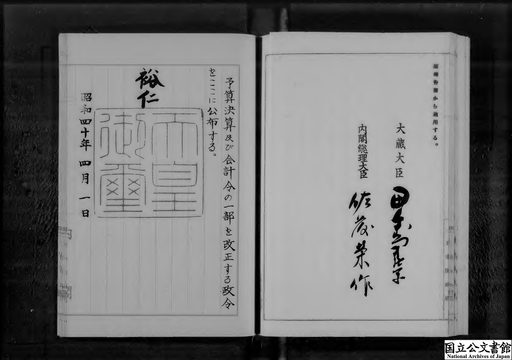 予算決算及び会計令の一部を改正する政令
をここに公布する。
裕仁
天皇
御璽
昭和四十年四月一日
から適用する。
大蔵大臣
田中角栄
内閣総理大臣
佐藤榮作
国立公文書館
National Archives of Japan